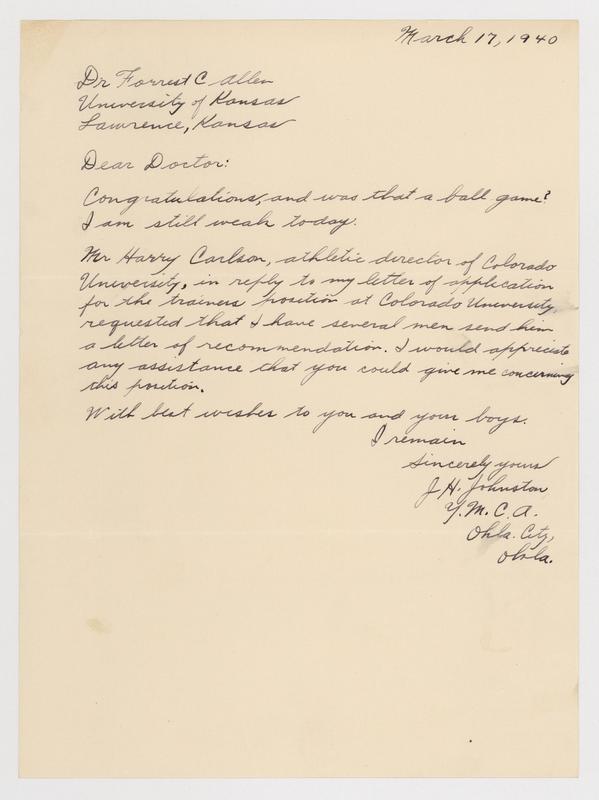 March 17, 1940
Dr Forrest C Allen
University of Kansas
Lawrence, Kansas
Dear Doctor:
Congratulations, and was that a ball game?
I am still weak today.
Mr Harry Carlson, athletic director of Colorado
University, in reply to my letter of application
for the trainers position at Colorado University,
requested that I have several men send him
a letter of recommendation. I would appreciate
any assistance that you could give me concerning
this position.
With best wishes to you and your boys.
I remain
Sincerely yours
J. H. Johnston
Y.M.C.A.
Okla. City,
Okla.